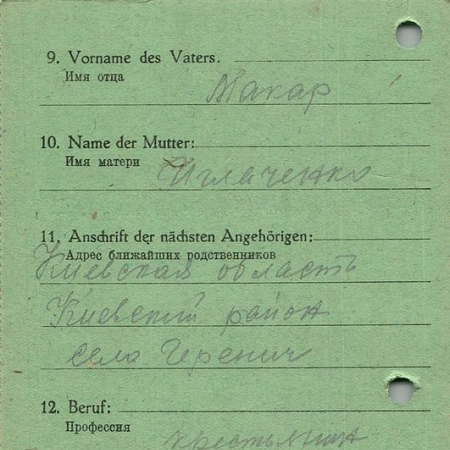 9. Vorname des Vaters.
Имя отца
Макар
10. Name der Mutter:
Имя матери
Иглаченко
11. Anschrift der nächsten Angehörigen:
Адрес ближайших родственников
Киевская область
Киевский район
село
12. Beruf:
Профессия
крестьянин